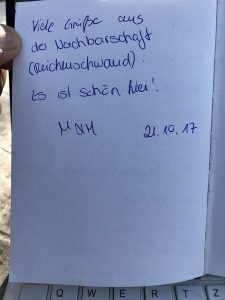 Viele Grüße aus
der Nachbarschaft
(Reichenschwand).
Es ist schön hier!
21.10.17
Q W E R T Z